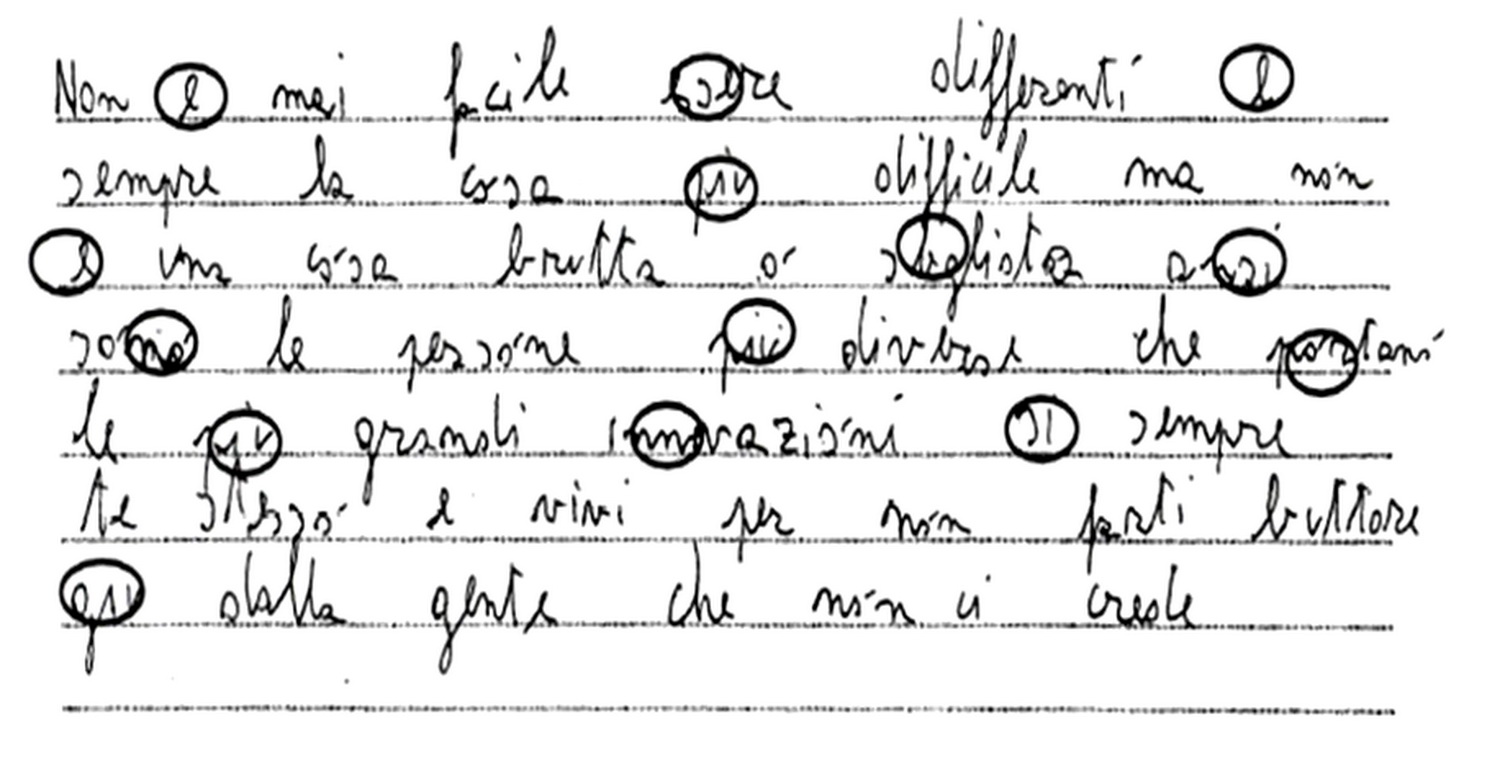 Non e mai facile esere differenti e
sempre la cosa più difficile ma non
e una cosa brutta o sbagliata anzi
sono le persone più diverse che portano
le più grandi innovazioni si sempre
te stesso e vivi per non farti buttare
giu dalla gente che non ci crede